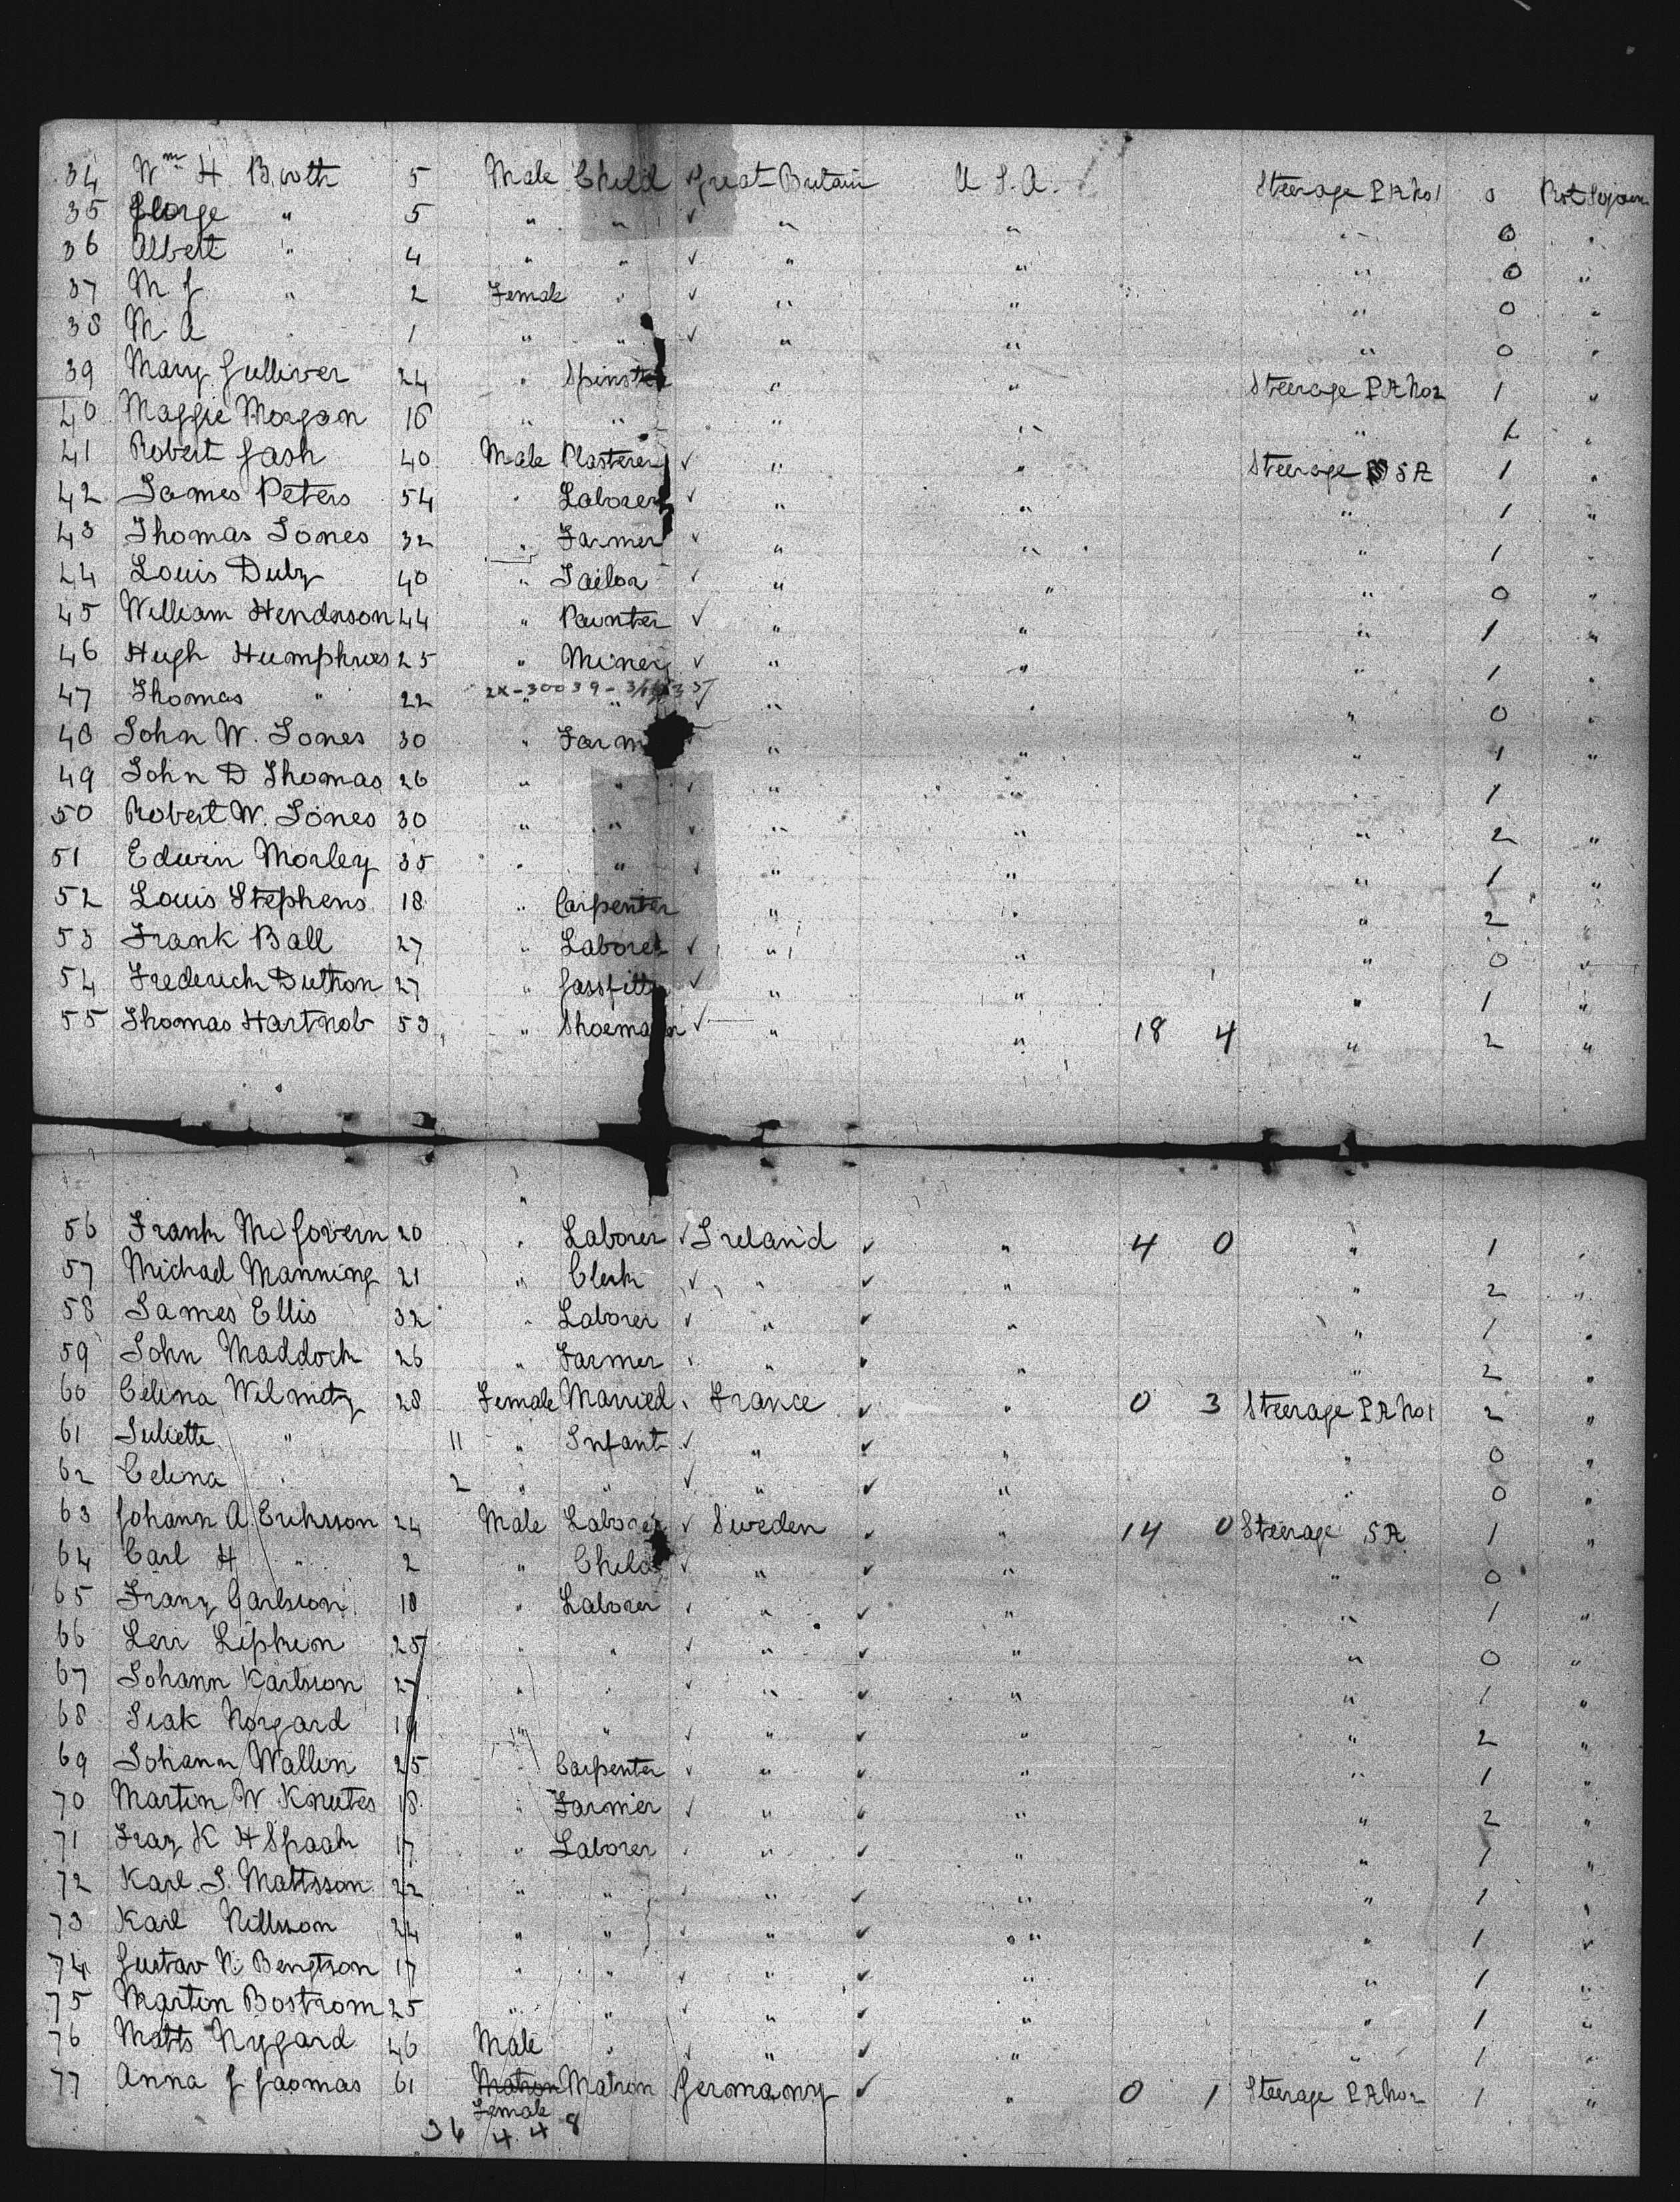 34 Wm H Booth 5 Male Child Great Britain U.S.A. Steerage P.A No1 0 Prot Sojourn
35 George " 5 " " ✓ " " " 0 "
36 Albert " 4 " " ✓ " " " 0 "
37 M. J " 2 Female " ✓ " " " 0 "
38 M. A 1 " " ✓ " " " 0 "
39 Mary Gulliver 24 " Spinster " " Steerage P.A No2 1 "
40 Maggie Morgan 16 " " " " " 1 "
41 Robert Gash 40 Male Plasterer ✓ " " Steerage SA 1 "
42 James Peters 54 " Laborer ✓ " " " 1 "
43 Thomas Jones 32 " Farmer ✓ " " " 1 "
44 Louis Dulz 40 " Tailor ✓ " " " 0 "
45 William Henderson 44 " Painter ✓ " " " 1 "
46 Hugh Humphries 25 " Miner ✓ " " " 1 "
47 Thomas " 22 2X-30039- " " ✓ " " " 0 "
48 John W. Jones 30 " Farm " " " 1 "
49 John D Thomas 26 " " ✓ " " " 1
50 Robert W. Jones 30 " " ✓ " " " 2 "
51 Edwin Morley 35 " " ✓ " " " 1 "
52 Louis Stephens 18 " Carpenter " " " 2 "
53 Frank Ball 27 " Laborer ✓ " " " 0 "
54 Frederich Dutton 27 " Gassfitter ✓ " " " 1 "
55 Thomas Hartnob 53 " Shoemaker ✓ " " 18 4 " 2 "
56 Frank McGovern 20 " Laborer ✓ Ireland ✓ " 4 0 " 1 "
57 Michael Manning 21 " Clerk ✓ " ✓ " " 2 "
58 James Ellis 32 " Laborer ✓ " ✓ " " 1 "
59 John Maddock 26 " Farmer ✓ " ✓ " " 2 "
60 Celina Wilmetz 28 Female Married ✓ France ✓ " 0 3 Steerage P.A No1 2 "
61 Juliette " 11 " Infant ✓ " ✓ " " 0 "
62 Celina " 2 " " ✓ " ✓ " " 0 "
63 Johann A Eriksson 24 Male Laborer ✓ Sweden ✓ " 14 0 Steerage SA 1 "
64 Carl H " 2 " Child ✓ " ✓ " " 0
65 Franz Carlsson 18 " Laborer ✓ " ✓ " " 1 "
66 25 " " ✓ " ✓ " " 0 "
67 Johann Karlsson 27 " " ✓ " ✓ " " 1 "
68 Isak Norgard 19 " " ✓ " ✓ " " 2 "
69 Johann Wallin 25 " Carpenter ✓ " ✓ " " 1 "
70 Martin W Knutes 18 " Farmer ✓ " ✓ " " 2 "
71 Franz K H Spaak 17 " Laborer ✓ " ✓ " " 1 "
72 Karl J. Mattsson 22 " " ✓ " ✓ " " 1 "
73 Karl Nillsson 24 " " ✓ " ✓ " " 1 "
74 Gustav N. Bengtson 17 " " ✓ " ✓ " " 1 "
75 Martin Bostrom 25 " " ✓ " ✓ " " 1 "
76 Matts Nygard 46 Male " ✓ " ✓ " " 1 "
77 Anna J 61 Matron Matron Germany ✓ " 0 1 Steerage P.A No2 1 "
Female
36 4 4 8